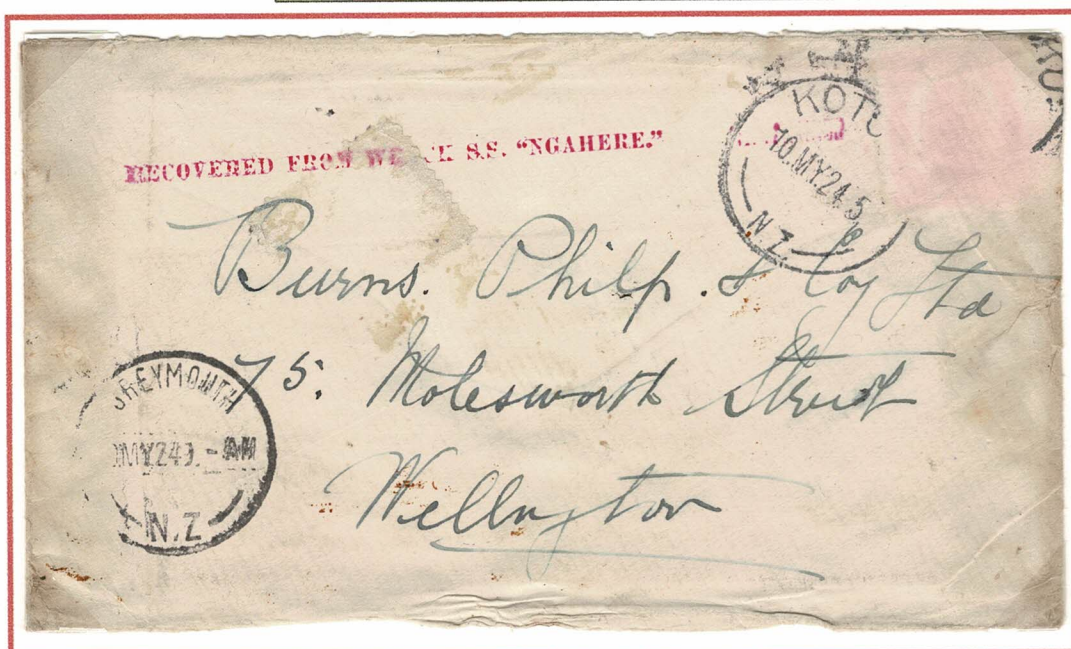 RECOVERED FROM WRECK S.S. "NGAHERE."
KOTU
10.MY.24.5
N.Z
Burns. Philp. & Coy Ltd
75. Molesworth Street
Wellington
GREYMOUTH
MY24 9.-AM
N.Z